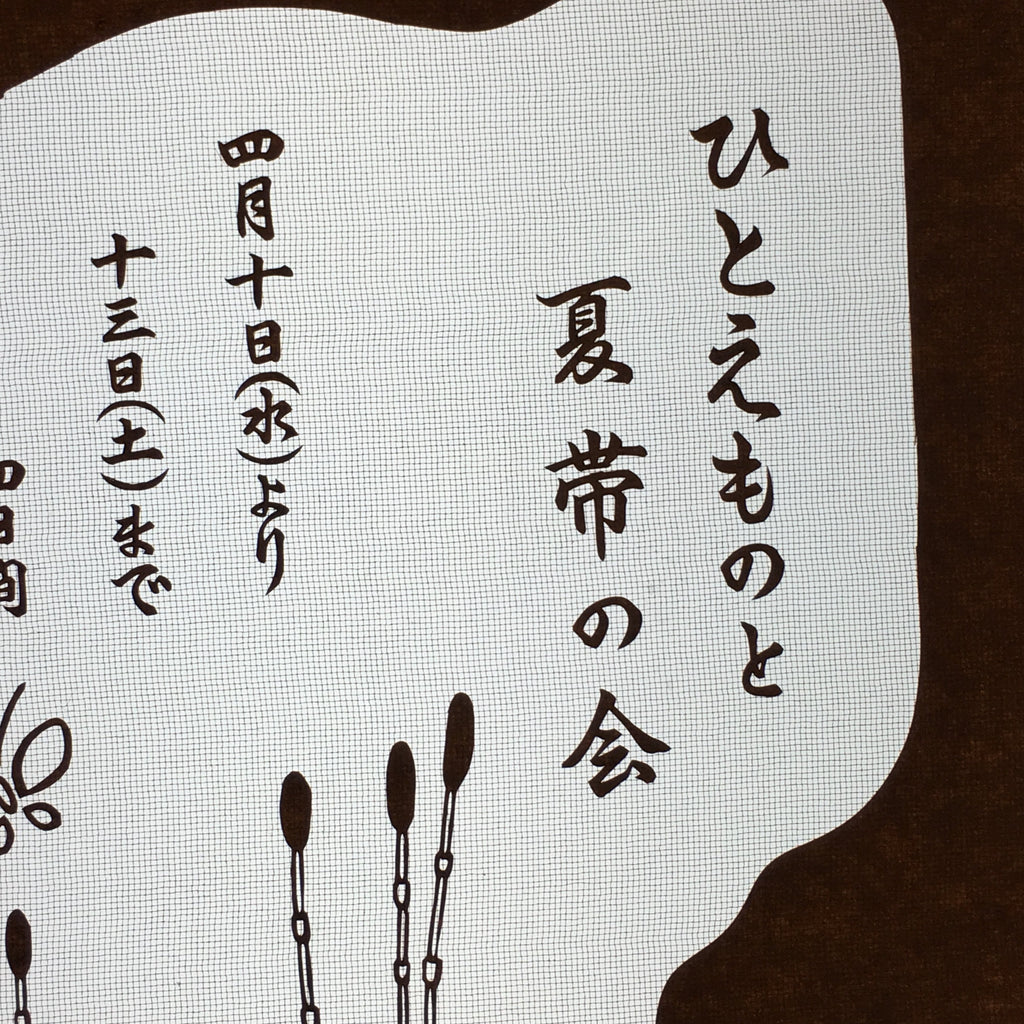 ひとえものと
夏帯の会
四月十日(水)より
十三日(土)まで
四日間